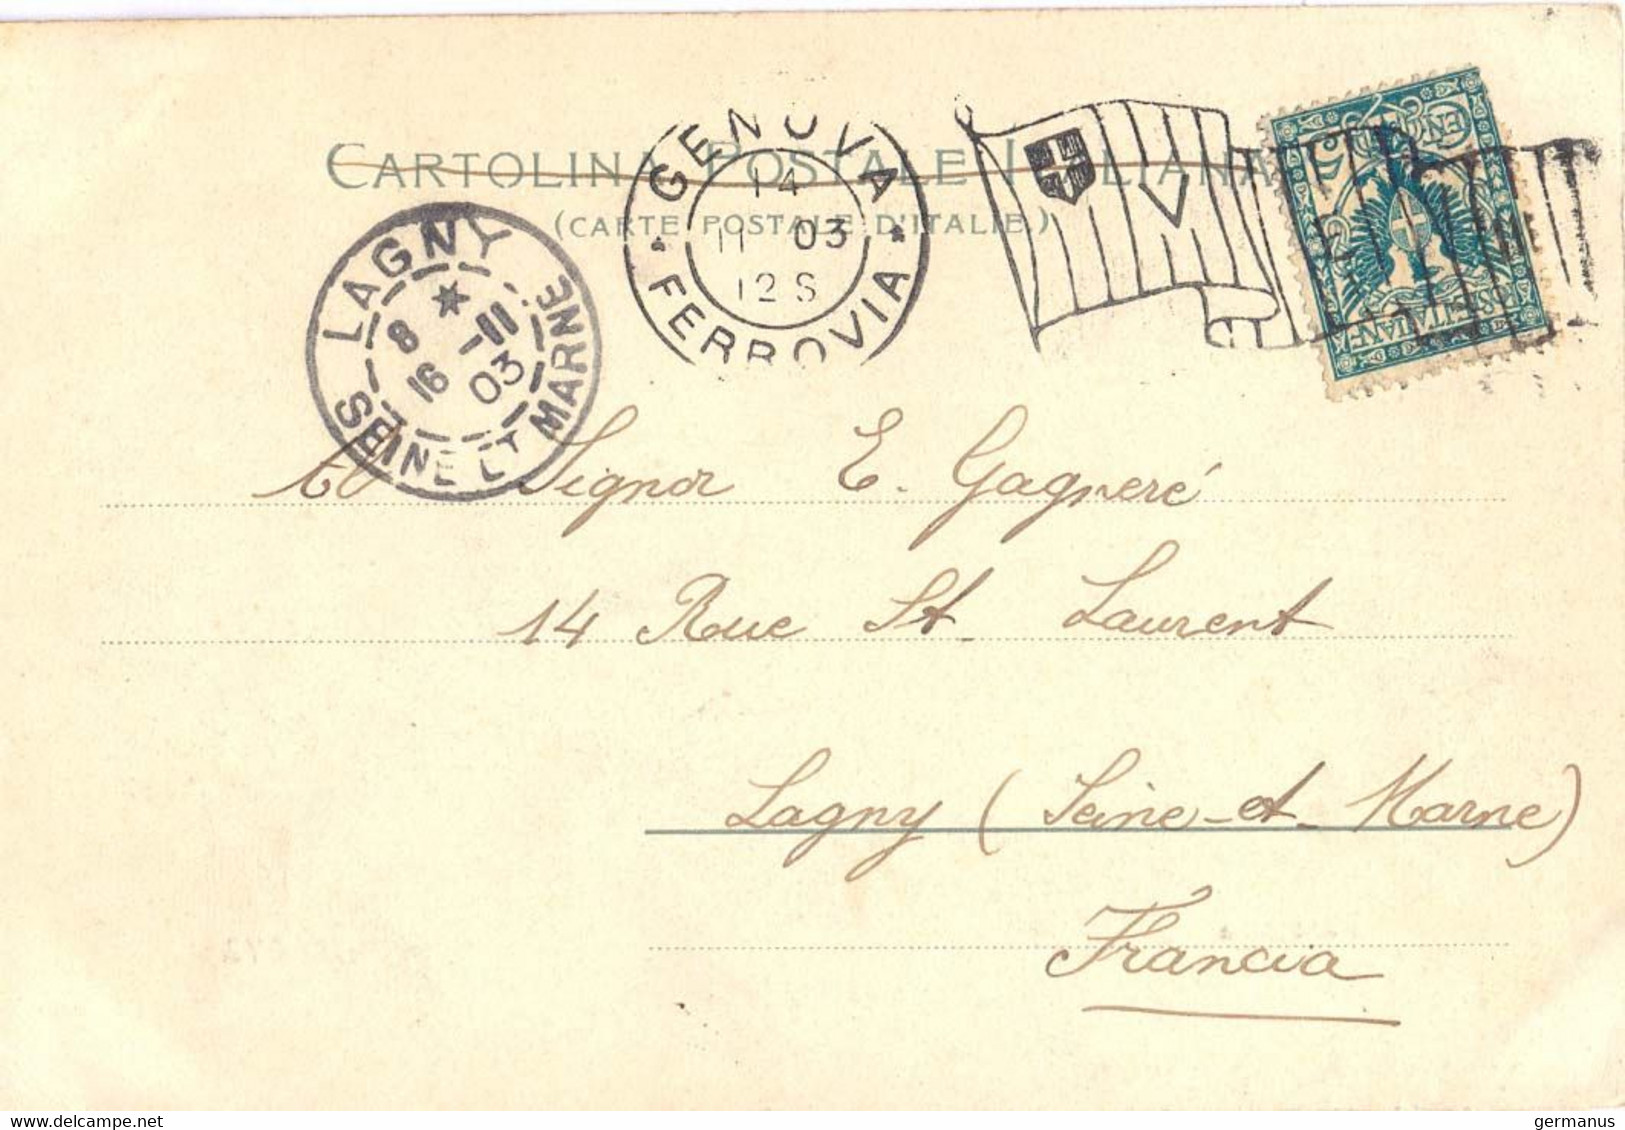 CARTOLINA POSTALE ITALIANA
(CARTE POSTALE D'ITALIE.)
GENOVA
14
11 03
12 S
* FERROVIA *
V
LAGNY
8 * -11
16 03
SEINE ET MARNE
Signor E. Gagneré
14 Rue St. Laurent
Lagny (Seine-et-Marne)
Francia
germanus